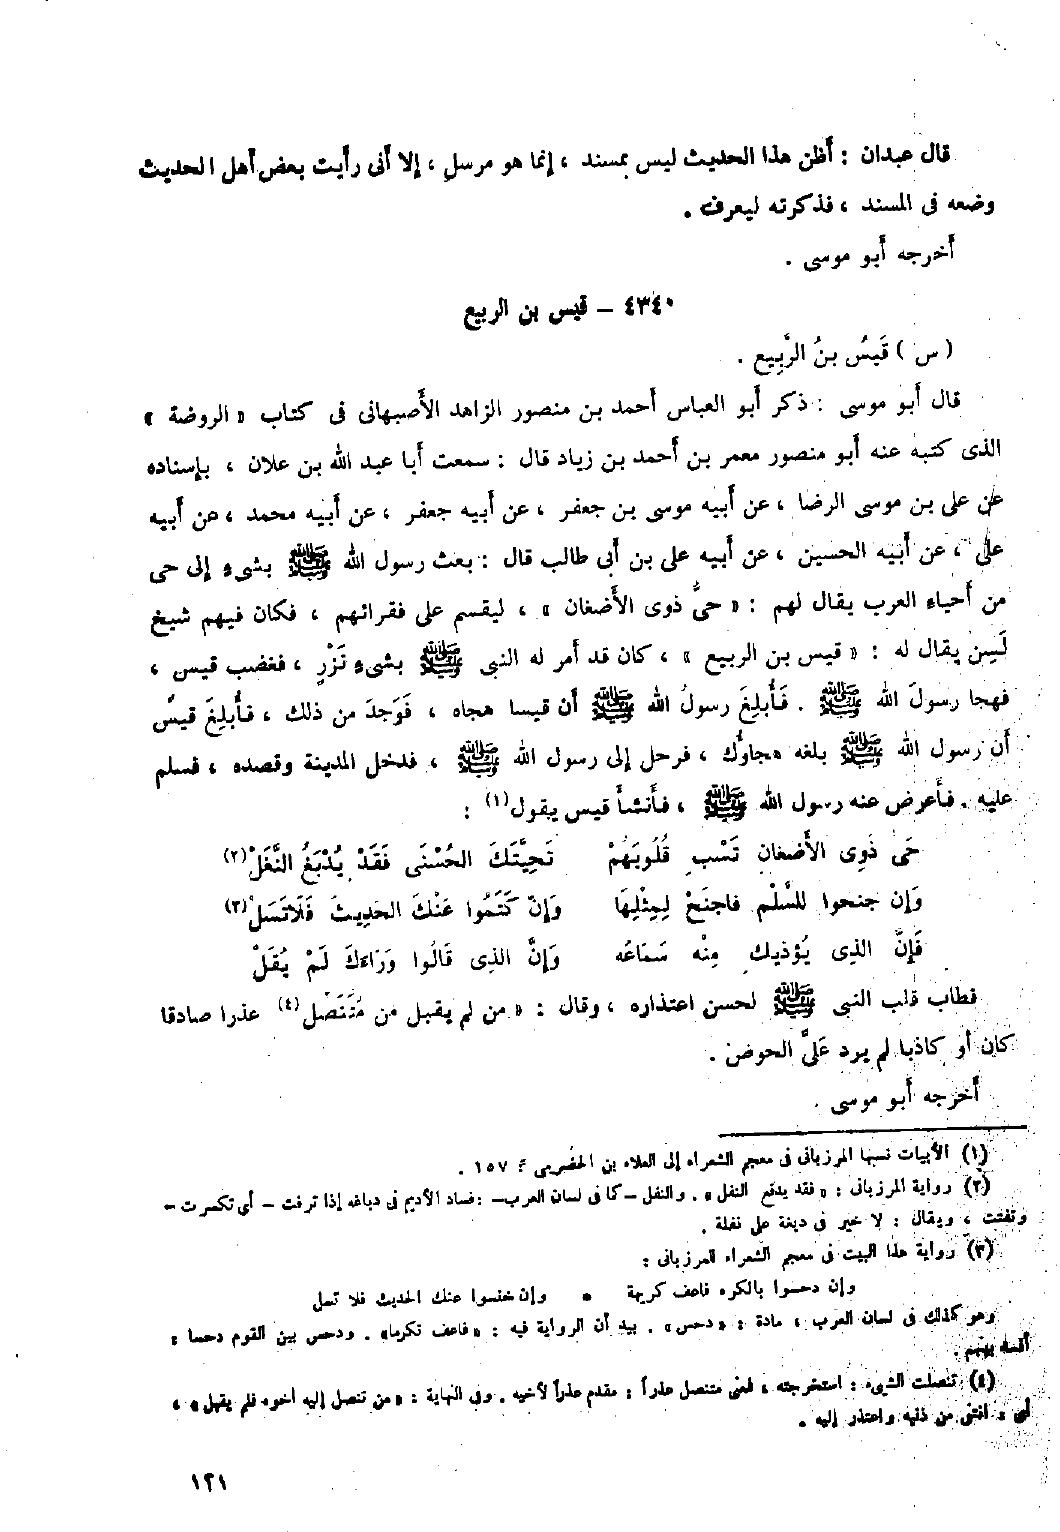 قال عبدان : أظن هذا الحديث ليس بمسند ، إنما هو مرسل ، إلا أنى رأيت بعض أهل الحديث
وضعه فى المسند ، فذكرته ليعرف .
أخرجه أبو موسى .
٤٣٤٠ – قيس بن الربيع
( س ) قَيسُ بنُ الرَّبِيع .
قال أبو موسى : ذكر أبو العباس أحمد بن منصور الزاهد الأصبهانى فى كتاب « الروضة »
الذى كتبه عنه أبو منصور معمر بن أحمد بن زياد قال : سمعت أبا عبد الله بن علان ، بإسناده
عن على بن موسى الرضا ، عن أبيه موسى بن جعفر ، عن أبيه جعفر ، عن أبيه محمد ، عن أبيه
على ، عن أبيه الحسين ، عن أبيه على بن أبى طالب قال : بعث رسول الله ﷺ بشىءٍ إلى حى
من أحياء العرب يقال لهم : « حىُّ ذوى الأضغان » ، ليقسم على فقرائهم ، فكان فيهم شيخ
لَسِن يقال له : « قيس بن الربيع » ، كان قد أمر له النبى ﷺ بشىءٍ نَزْرٍ ، فغضب قيس ،
فهجا رسولَ الله ﷺ . فَأُبلِغَ رسولُ الله ﷺ أن قيسا هجاه ، فَوَجدَ من ذلك ، فأُبلِغَ قيسٌ
أن رسول الله ﷺ بلغه هجاوُك ، فرحل إلى رسول الله ﷺ ، فدخل المدينة وقصده ، فسلم
عليه . فأعرض عنه رسول الله ﷺ ، فأَنشأَ قيس يقول(١) :
حَى ذَوِى الأَضغانِ تَسْبِ قُلُوبَهُمْ    تَحِيَّتَكَ الحُسْنَى فَقَدْ يُدْبَغُ النَّغَلْ(٢)
وَإن جنحوا للسَّلْم فاجنَحْ لِمِثْلِهَا    وَإنْ كَتَمُوا عَنْكَ الحَدِيثَ فَلَا تَسَلْ(٣)
فَإنَّ الذِى يُؤذيكَ مِنْه سَمَاعُه    وَإنَّ الذِى قَالُوا وَرَاءَكَ لَمْ يُقَلْ
فطاب قلب النبى ﷺ لحسن اعتذاره ، وقال : « من لم يقبل من مُتَنَصِّل(٤) عذرا صادقا
كان أو كاذبا لم يرد عَلىَّ الحوض .
أخرجه أبو موسى .
(١) الأبيات نسبها المرزبانى فى معجم الشعراء إلى العلاء بن الحضرمى : ١٥٧ .
(٢) رواية المرزبانى : « فقد يدفع النغل » . والنغل – كا فى لسان العرب – : فساد الأديم فى دباغه إذا ترفت – أى تكسرت –
وتفتت ، ويقال : لا خير فى دبغة على نغلة .
(٣) رواية هذا البيت فى معجم الشعراء للمرزبانى :
وإن دحسوا بالكره فاعف كريمة • وإن خنسوا عنك الحديث فلا تسل
وهو كذلك فى لسان العرب ، مادة : « دحس » . بيد أن الرواية فيه : « فاعف تكرما » . ودحس بين القوم دحسا :
أفسد بينهم .
(٤) تنصلت الشىء : استخرجته ، فمعنى متنصل عذراً : مقدم عذراً لأخيه . وفى النهاية : « من تنصل إليه أخوه فلم يقبل » ،
أى : انتفى من ذنبه واعتذر إليه .
١٢١